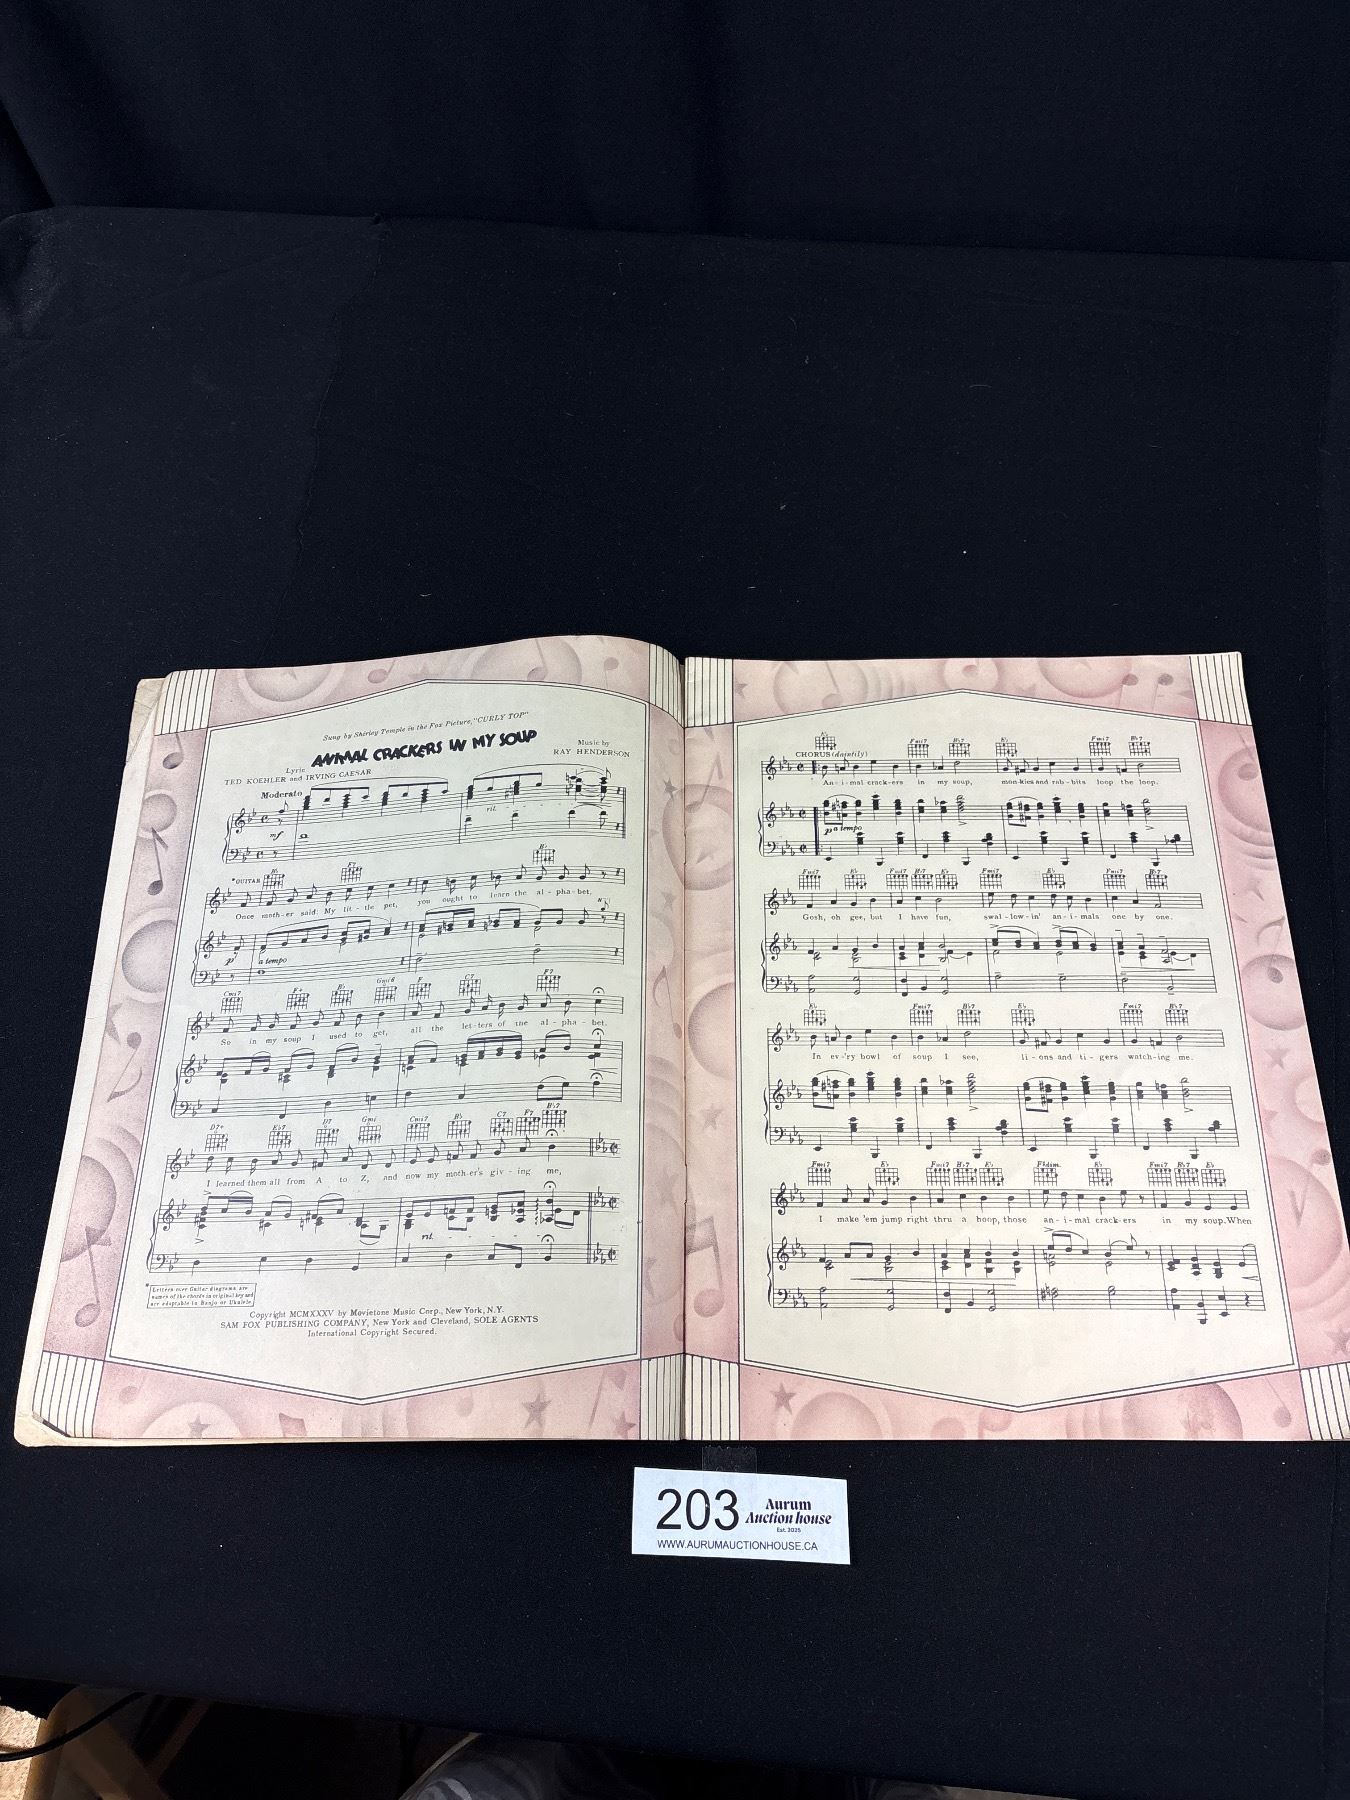 Sung by Shirley Temple in the Fox Picture, "CURLY TOP"
ANIMAL CRACKERS IN MY SOUP
Lyric
TED KOEHLER and IRVING CAESAR
Music by
RAY HENDERSON
Moderato
mf
rit.
*GUITAR
B♭
F7
B♭
Once moth-er said: My lit-tle pet, you ought to learn the al-pha-bet,
p
a tempo
Cmi7 F+ B♭ Gmi6 F C7 F7
So in my soup I used to get, all the let-ters of the al-pha-bet.
D7+ E♭7 D7 Gmi Cmi7 B♭ C7 F7 B♭7
I learned them all from A to Z, and now my moth-er's giv-ing me,
rit.
*
Letters over Guitar diagrams are
names of the chords in original key and
are adaptable to Banjo or Ukulele
Copyright MCMXXXV by Movietone Music Corp., New York, N.Y.
SAM FOX PUBLISHING COMPANY, New York and Cleveland, SOLE AGENTS
International Copyright Secured.
CHORUS (daintily)
E♭ Fmi7 B♭7 E♭ Fmi7 B♭7
An-i-mal crack-ers in my soup, mon-kies and rab-bits loop the loop.
p a tempo
Fmi7 E♭ Fmi7 B♭7 E♭ Fmi7 E♭ Fmi7 B♭7
Gosh, oh gee, but I have fun, swal-low-in' an-i-mals one by one.
E♭ Fmi7 B♭7 E♭ Fmi7 B♭7
In ev-'ry bowl of soup I see, li-ons and ti-gers watch-ing me.
Fmi7 E♭ Fmi7 B♭7 E♭ F♯dim. B♭ Fmi7 B♭7 E♭
I make 'em jump right thru a hoop, those an-i-mal crack-ers in my soup. When
203
Aurum
Auction house
Est. 2025
WWW.AURUMAUCTIONHOUSE.CA